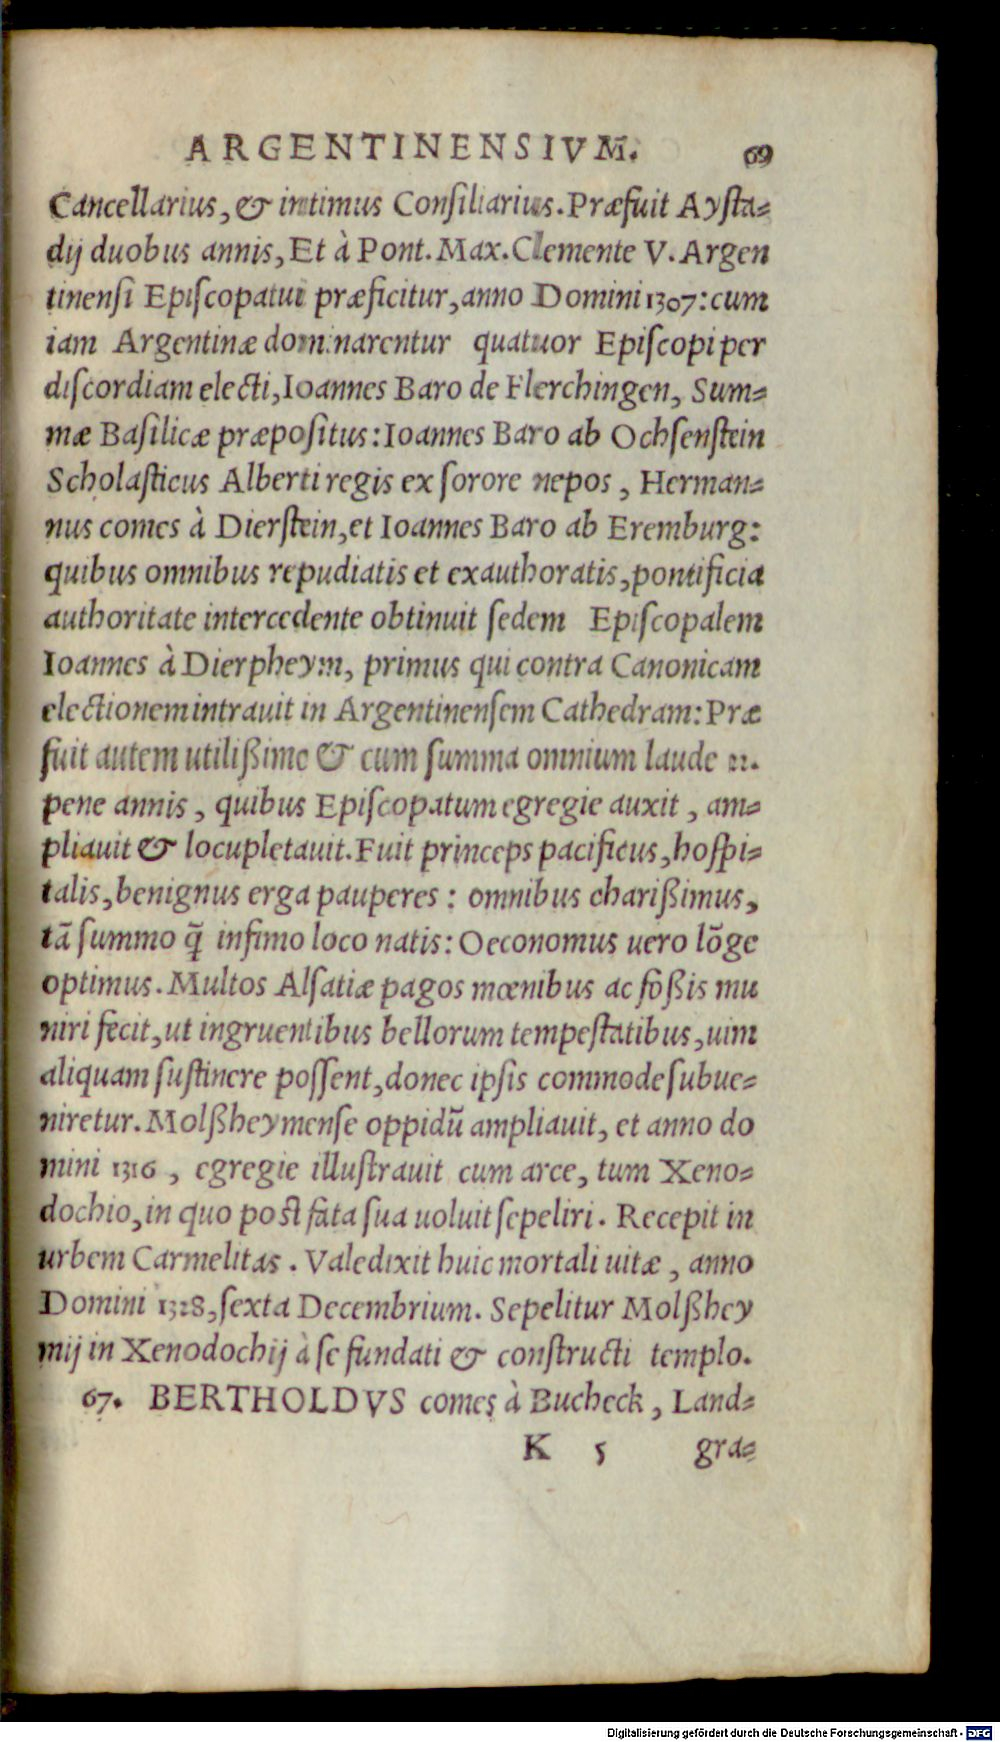 ARGENTINENSIVM. 69
Cancellarius, & intimus Consiliarius. Præfuit Aysta-
dij duobus annis, Et à Pont. Max. Clemente V. Argen
tinensi Episcopatui præficitur, anno Domini 1307: cum
iam Argentinæ dominarentur quatuor Episcopi per
discordiam electi, Ioannes Baro de Flerchingen, Sum-
mæ Basilicæ præpositus: Ioannes Baro ab Ochsenstein
Scholasticus Alberti regis ex sorore nepos, Herman-
nus comes à Dierstein, et Ioannes Baro ab Eremburg:
quibus omnibus repudiatis et exauthoratis, pontificia
authoritate intercedente obtinuit sedem Episcopalem
Ioannes à Dierpheym, primus qui contra Canonicam
electionem intrauit in Argentinensem Cathedram: Præ
fuit autem utilißime & cum summa omnium laude 22.
pene annis, quibus Episcopatum egregie auxit, am-
pliauit & locupletauit. Fuit princeps pacificus, hospi-
talis, benignus erga pauperes: omnibus charißimus,
tã summo q̃ infimo loco natis: Oeconomus uero lõge
optimus. Multos Alsatiæ pagos mœnibus ac foßis mu
niri fecit, ut ingruentibus bellorum tempestatibus, uim
aliquam sustinere possent, donec ipsis commode subue-
niretur. Molßheymense oppidũ ampliauit, et anno do
mini 1316, egregie illustrauit cum arce, tum Xeno-
dochio, in quo post fata sua uoluit sepeliri. Recepit in
urbem Carmelitas. Valedixit huic mortali uitæ, anno
Domini 1328, sexta Decembrium. Sepelitur Molßhey
mij in Xenodochij à se fundati & constructi templo.
67. BERTHOLDVS comes à Bucheck, Land-
K 5 gra-
Digitalisierung gefördert durch die Deutsche Forschungsgemeinschaft - DFG